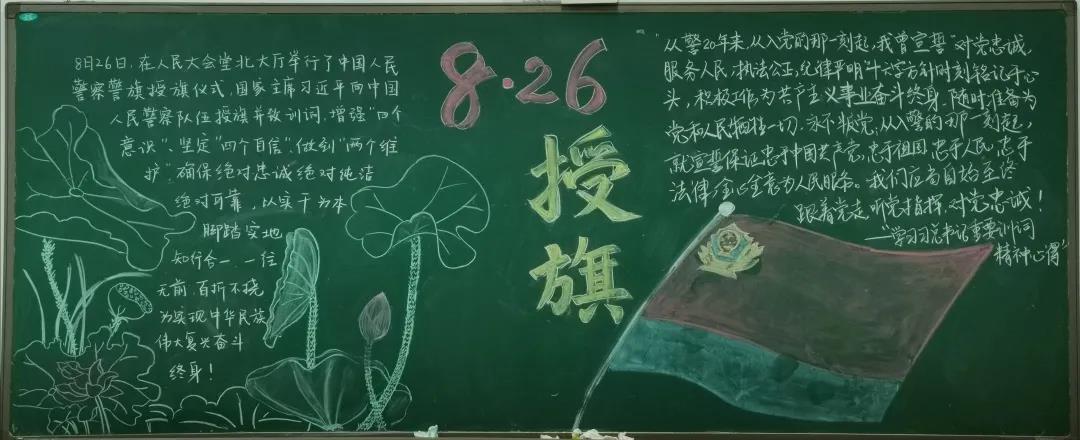 8月26日，在人民大会堂北大厅举行了中国人民
警察警旗授旗仪式，国家主席习近平向中国
人民警察队伍授旗并致训词，增强"四个
意识"、坚定"四个自信"、做到"两个维
护"，确保绝对忠诚绝对纯洁
绝对可靠，以实干为本
脚踏实地
知行合一，一往
无前，百折不挠
为实现中华民族
伟大复兴奋斗
终身！
8·26
授
旗
"从警20年来，从入党的那一刻起，我曾宣誓"对党忠诚，
服务人民，执法公正，纪律严明"十六字方针时刻铭记于心
头，积极工作，为共产主义事业奋斗终身，随时准备为
党和人民牺牲一切，永不叛党，从入警的那一刻起，
就宣誓保证忠于中国共产党，忠于祖国，忠于人民，忠于
法律，全心全意为人民服务。我们应当自始至终
跟着党走，听党指挥，对党忠诚！
—"学习习总书记重要训词
精神心得"